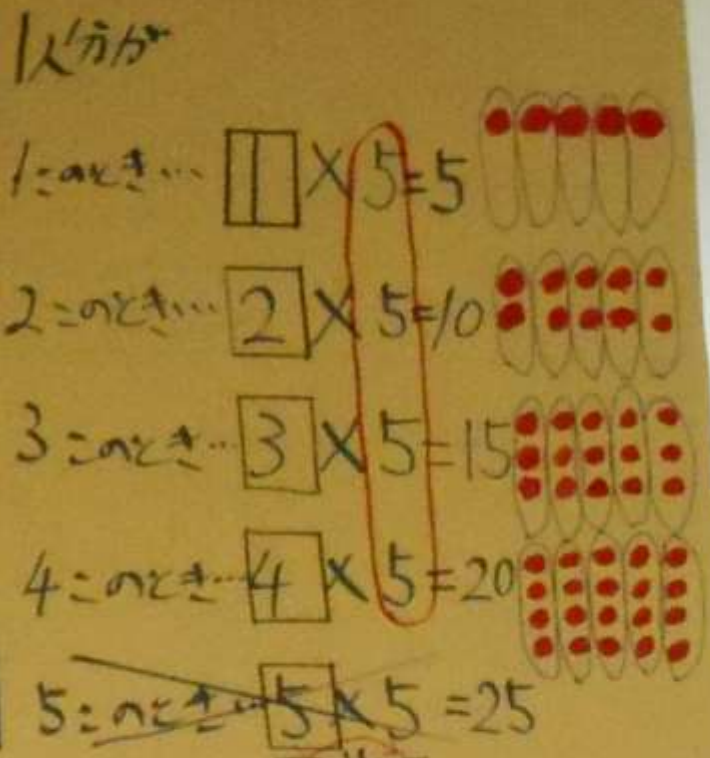 1人分が
1このとき… 1×5=5
2このとき… 2×5=10
3このとき… 3×5=15
4このとき… 4×5=20
5このとき… 5×5=25